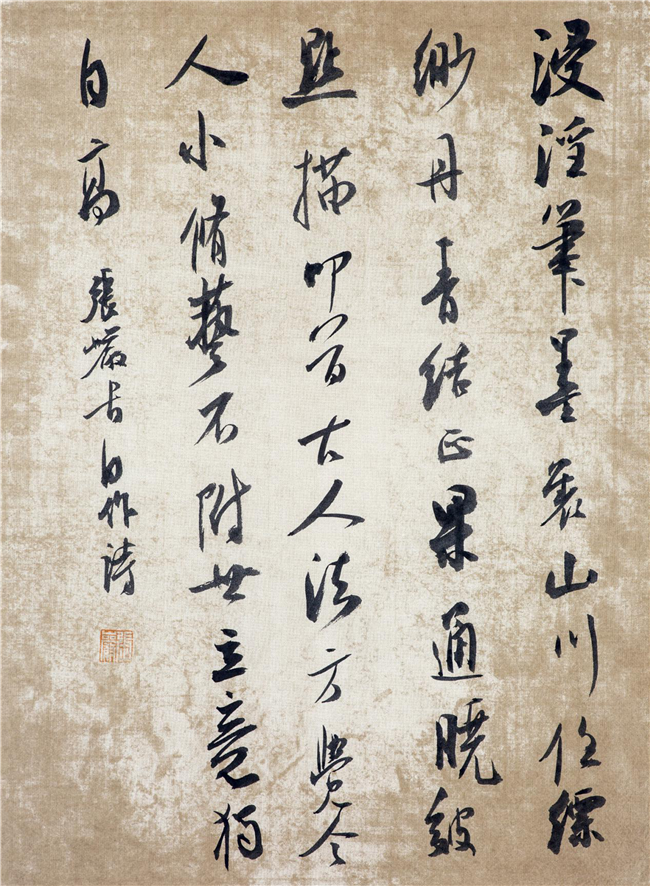 浸淫筆墨山川任縹
緲丹青結正果通曉皴
點描叩首古人法方覺今
人小脩藝不附世立意獨
自高
張自作詩